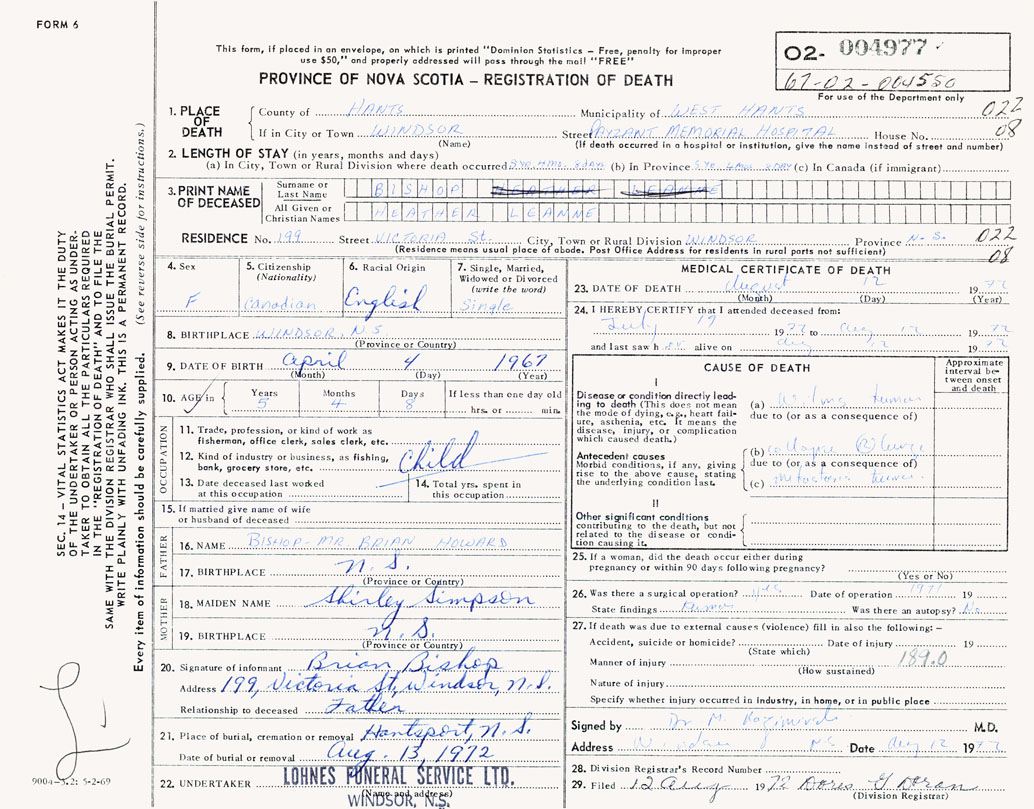 FORM 6
This form, if placed in an envelope, on which is printed "Dominion Statistics – Free, penalty for improper
use $50," and properly addressed will pass through the mail "FREE"
PROVINCE OF NOVA SCOTIA – REGISTRATION OF DEATH
02- 004977
67-02-004550
For use of the Department only
1. PLACE OF DEATH
County of HANTS Municipality of WEST HANTS 022
If in City or Town WINDSOR Street PAYZANT MEMORIAL HOSPITAL House No. 08
(Name) (If death occurred in a hospital or institution, give the name instead of street and number)
2. LENGTH OF STAY (in years, months and days)
(a) In City, Town or Rural Division where death occurred 5 yr. 4 mo. 8 days (b) In Province 5 yr. 4 mo. 8 day (c) In Canada (if immigrant)
3. PRINT NAME OF DECEASED
Surname or Last Name BISHOP HEATHER LEANNE
All Given or Christian Names HEATHER LEANNE
RESIDENCE No. 199 Street VICTORIA St. City, Town or Rural Division WINDSOR Province N.S. 022
(Residence means usual place of abode. Post Office Address for residents in rural parts not sufficient) 08
4. Sex
F
5. Citizenship
(Nationality)
Canadian
6. Racial Origin
English
7. Single, Married,
Widowed or Divorced
(write the word)
Single
8. BIRTHPLACE WINDSOR, N.S.
(Province or Country)
9. DATE OF BIRTH April 4 1967
(Month) (Day) (Year)
10. AGE in Years Months Days If less than one day old
5 4 8 hrs. or min.
OCCUPATION
11. Trade, profession, or kind of work as
fisherman, office clerk, sales clerk, etc.
12. Kind of industry or business, as fishing,
bank, grocery store, etc.
Child
13. Date deceased last worked
at this occupation
14. Total yrs. spent in
this occupation
15. If married give name of wife
or husband of deceased
FATHER
16. NAME BISHOP - MR. BRIAN HOWARD
17. BIRTHPLACE N.S.
(Province or Country)
MOTHER
18. MAIDEN NAME Shirley Simpson
19. BIRTHPLACE N.S.
(Province or Country)
20. Signature of informant Brian Bishop
Address 199, Victoria St, Windsor, N.S.
Relationship to deceased Father
21. Place of burial, cremation or removal Hantsport, N.S.
Date of burial or removal Aug. 13, 1972
22. UNDERTAKER LOHNES FUNERAL SERVICE LTD.
(Name and address)
WINDSOR, N.S.
MEDICAL CERTIFICATE OF DEATH
23. DATE OF DEATH August 12 1972
(Month) (Day) (Year)
24. I HEREBY CERTIFY that I attended deceased from:
July 19 1972 to Aug 12 1972
and last saw her alive on Aug 12 1972
CAUSE OF DEATH
Approximate
interval be-
tween onset
and death
I
Disease or condition directly lead-
ing to death (This does not mean
the mode of dying, e.g., heart fail-
ure, asthenia, etc. It means the
disease, injury, or complication
which caused death.)
(a) Wilms tumor
due to (or as a consequence of)
Antecedent causes
Morbid conditions, if any, giving
rise to the above cause, stating
the underlying condition last.
(b) collapse lung
due to (or as a consequence of)
(c) tumor
II
Other significant conditions
contributing to the death, but not
related to the disease or condi-
tion causing it.
25. If a woman, did the death occur either during
pregnancy or within 90 days following pregnancy?
(Yes or No)
26. Was there a surgical operation? yes Date of operation 1971 19
State findings tumor Was there an autopsy? No
27. If death was due to external causes (violence) fill in also the following: –
Accident, suicide or homicide? Date of injury 19
(State which)
Manner of injury 189.0
(How sustained)
Nature of injury
Specify whether injury occurred in industry, in home, or in public place
Signed by Dr M. M.D.
Address Windsor NS Date Aug 12 1972
28. Division Registrar's Record Number
29. Filed 12 Aug 1972 Doris G Doran
(Division Registrar)
SEC. 14 – VITAL STATISTICS ACT MAKES IT THE DUTY
OF THE UNDERTAKER OR PERSON ACTING AS UNDER-
TAKER TO OBTAIN ALL THE PARTICULARS REQUIRED
IN THE "REGISTRATION OF DEATH" AND TO FILE THE
SAME WITH THE DIVISION REGISTRAR WHO SHALL ISSUE THE BURIAL PERMIT.
WRITE PLAINLY WITH UNFADING INK. THIS IS A PERMANENT RECORD.
Every item of information should be carefully supplied. (See reverse side for instructions.)
9004-3.2: 5-2-69